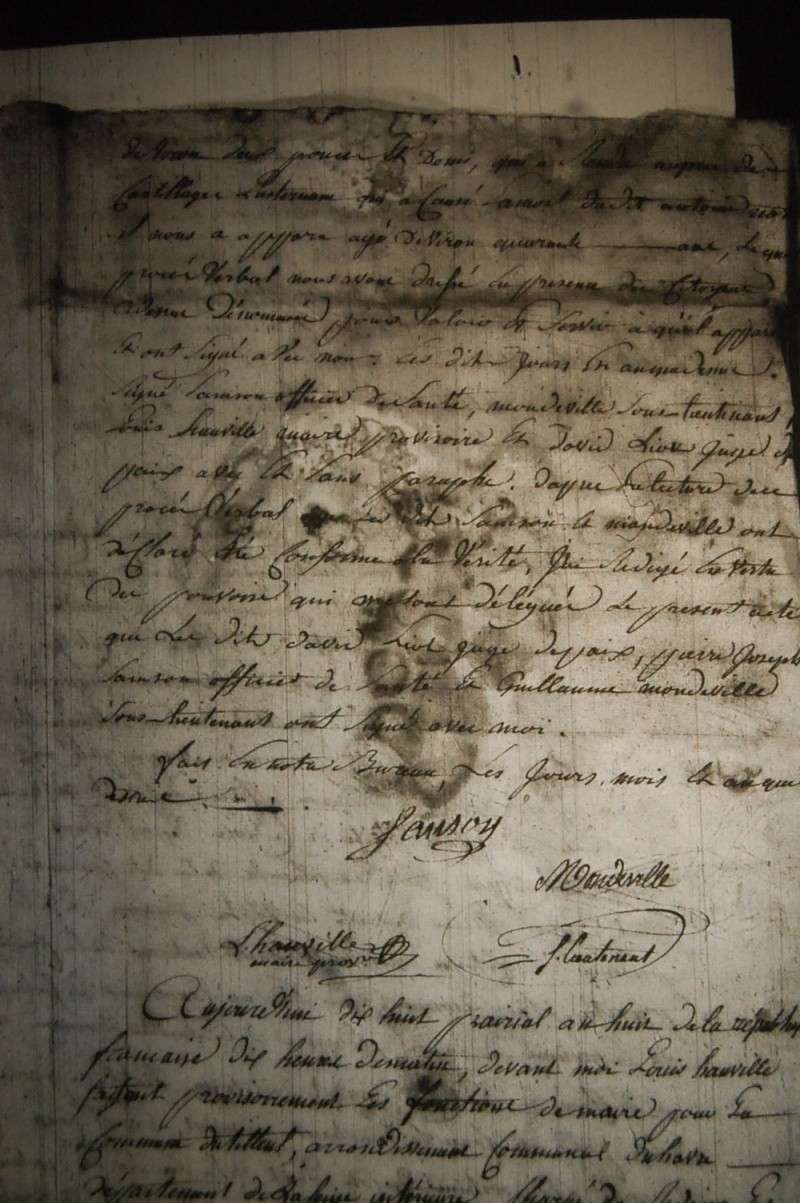 deviron deux pouces et demi, qui a
Cartillages qui a Causé la mort du dit antoine
et nous a apparu agé deviron quarante ans, de
procés Verbal nous avons dressé en presence des Citoyens
cidessus Dénommés, pour Valoir et Servir à qu'il appar
Et ont Signé avec nous. Les dits Jours et an que dessus.
Signé Samson officier De Santé, mondeville Sous-Lieutenant,
Louis hauville maire provisoire Et david Liot Juge de
paix avec Et Sans paraphe. dapres la lecture de ce
procés Verbal que les dits Samson et mondeville ont
déclaré Etre Conforme à la Vérité, J'ai Redigé En Vertu
des pouvoirs qui me sont délégués Le present acte
que Les dits david Liot Juge depaix, pierre Joseph
Samson officier de Santé Et Guillaume mondeville
Sous-lieutenant ont Signé avec moi.
fait En notre Bureau, Les Jours, mois Et an que
dessus.
Sanson
Mondeville
Lhauville
maire provre
S. lieutenant
Aujourd'hui dix huit prairial an huit de la republiq
francaise dix heures dematin, devant moi Louis hauville
faisant provisoirement Les fonctions de maire pour La
Commune du tilleul, arrondissement Communal du havre
département de la Seine inférieure